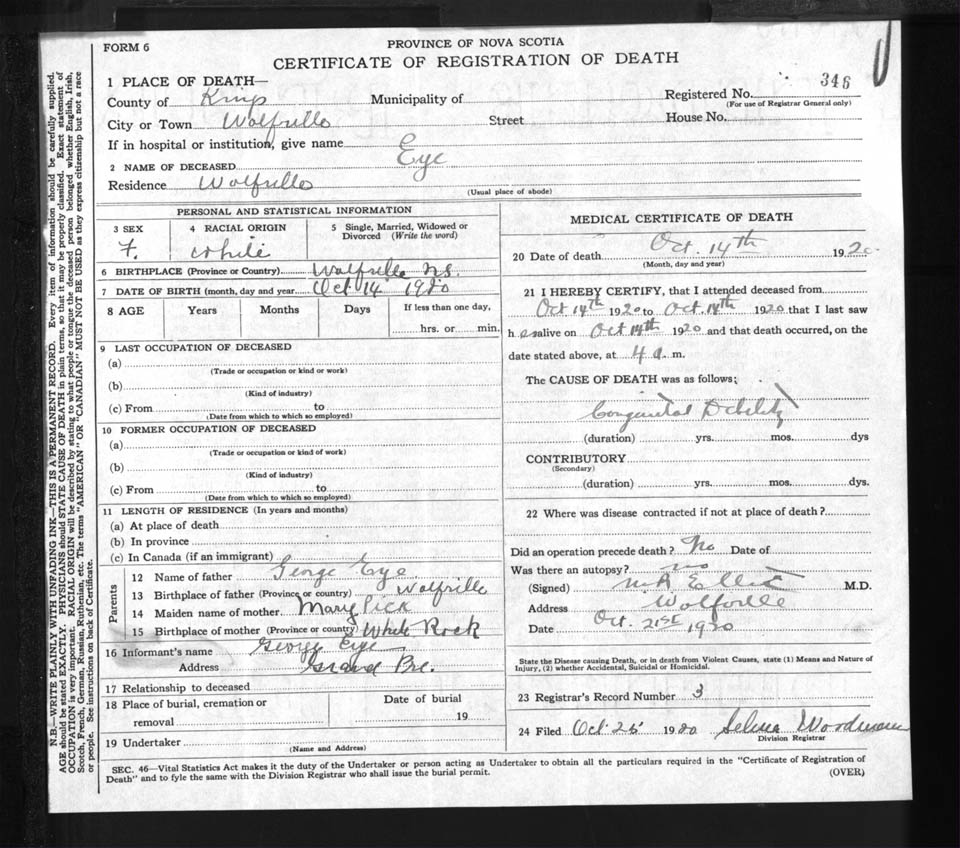 FORM 6
PROVINCE OF NOVA SCOTIA
CERTIFICATE OF REGISTRATION OF DEATH
1 PLACE OF DEATH—
346
County of Kings Municipality of Registered No.
(For use of Registrar General only)
City or Town Wolfville Street House No.
If in hospital or institution, give name
2 NAME OF DECEASED Eye
Residence Wolfville
(Usual place of abode)
PERSONAL AND STATISTICAL INFORMATION
3 SEX 4 RACIAL ORIGIN 5 Single, Married, Widowed or Divorced (Write the word)
F. White
6 BIRTHPLACE (Province or Country) Wolfville N.S.
7 DATE OF BIRTH (month, day and year) Oct 14 1920
8 AGE Years Months Days If less than one day,
hrs. or min.
9 LAST OCCUPATION OF DECEASED
(a)
(Trade or occupation or kind or work)
(b)
(Kind of industry)
(c) From to
(Date from which to which so employed)
10 FORMER OCCUPATION OF DECEASED
(a)
(Trade or occupation or kind of work)
(b)
(Kind of industry)
(c) From to
(Date from which to which so employed)
11 LENGTH OF RESIDENCE (In years and months)
(a) At place of death
(b) In province
(c) In Canada (if an immigrant)
Parents
12 Name of father George Eye
13 Birthplace of father (Province or country) Wolfville
14 Maiden name of mother Mary Pick
15 Birthplace of mother (Province or country) White Rock
16 Informant's name George Eye
Address Grand Pre.
17 Relationship to deceased
18 Place of burial, cremation or removal
Date of burial
19
19 Undertaker
(Name and Address)
MEDICAL CERTIFICATE OF DEATH
20 Date of death Oct. 14th 1920
(Month, day and year)
21 I HEREBY CERTIFY, that I attended deceased from
Oct 14th 1920 to Oct. 14th 1920 that I last saw
h er alive on Oct 14th 1920 and that death occurred, on the
date stated above, at 4 a. m.
The CAUSE OF DEATH was as follows:
Congenital Debility
(duration) yrs. mos. dys
CONTRIBUTORY
(Secondary)
(duration) yrs. mos. dys.
22 Where was disease contracted if not at place of death?
Did an operation precede death? No Date of
Was there an autopsy? no
(Signed) Elliott M.D.
Address Wolfville
Date Oct. 21st 1920
State the Disease causing Death, or in death from Violent Causes, state (1) Means and Nature of
Injury, (2) whether Accidental, Suicidal or Homicidal.
23 Registrar's Record Number 3
24 Filed Oct 25 1920 Selena Woodman
Division Registrar
SEC. 46—Vital Statistics Act makes it the duty of the Undertaker or person acting as Undertaker to obtain all the particulars required in the "Certificate of Registration of
Death" and to fyle the same with the Division Registrar who shall issue the burial permit.
(OVER)
N.B.—WRITE PLAINLY WITH UNFADING INK—THIS IS A PERMANENT RECORD. Every item of information should be carefully supplied.
AGE should be stated EXACTLY. PHYSICIANS should STATE CAUSE OF DEATH in plain terms, so that it may be properly classified. Exact statement of
OCCUPATION is very important. RACIAL ORIGIN will be described by stating to what people or tongue the deceased person belonged whether English, Irish,
Scotch, French, German, Russian, Ruthenian, etc. The terms "AMERICAN" OR "CANADIAN" MUST NOT BE USED as they express citizenship but not a race
or people. See instructions on back of Certificate.